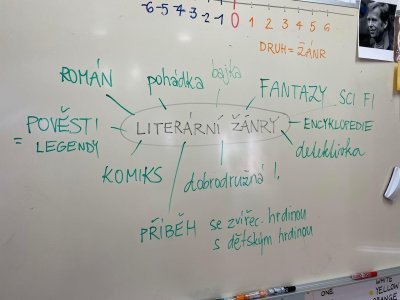 -6 -5 -4 -3 -2 -1 0 1 2 3 4 5 6
DRUH = ŽÁNR
ROMÁN
pohádka
bajka
FANTAZY SCI FI
POVĚSTI
= LEGENDY
LITERÁRNÍ ŽÁNRY
ENCYKLOPEDIE
detektivka
KOMIKS
dobrodružná
PŘÍBĚH se zvířec. hrdinou
s dětským hrdinou
ONE
WHITE
YELLOW
ORANGE